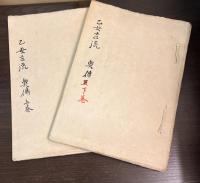 乙女古流 奥傳 下巻
乙女古流 奥傳 下巻